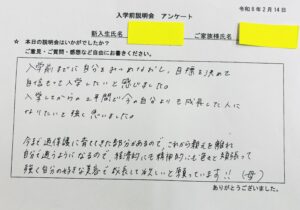 令和6年2月14日
入学前説明会　アンケート
新入生氏名
ご家族様氏名
★ 本日の説明会はいかがでしたか？
ご意見・ご質問・感想など自由にお書きください。
入学前までに自分をみつめなおし、目標を決めて
自信もって入学したいと感じました。
入学してからの2年間で今の自分よりも成長した人に
なりたいと強く思いました。
今まで過保護に育ててきた部分があるので、これから親元を離れ
自分で通うようになるので、経済的にも精神的にも色々と頑張って
強く自分の好きな美容で成長して欲しいと願っています!! (母)
ありがとうございました。